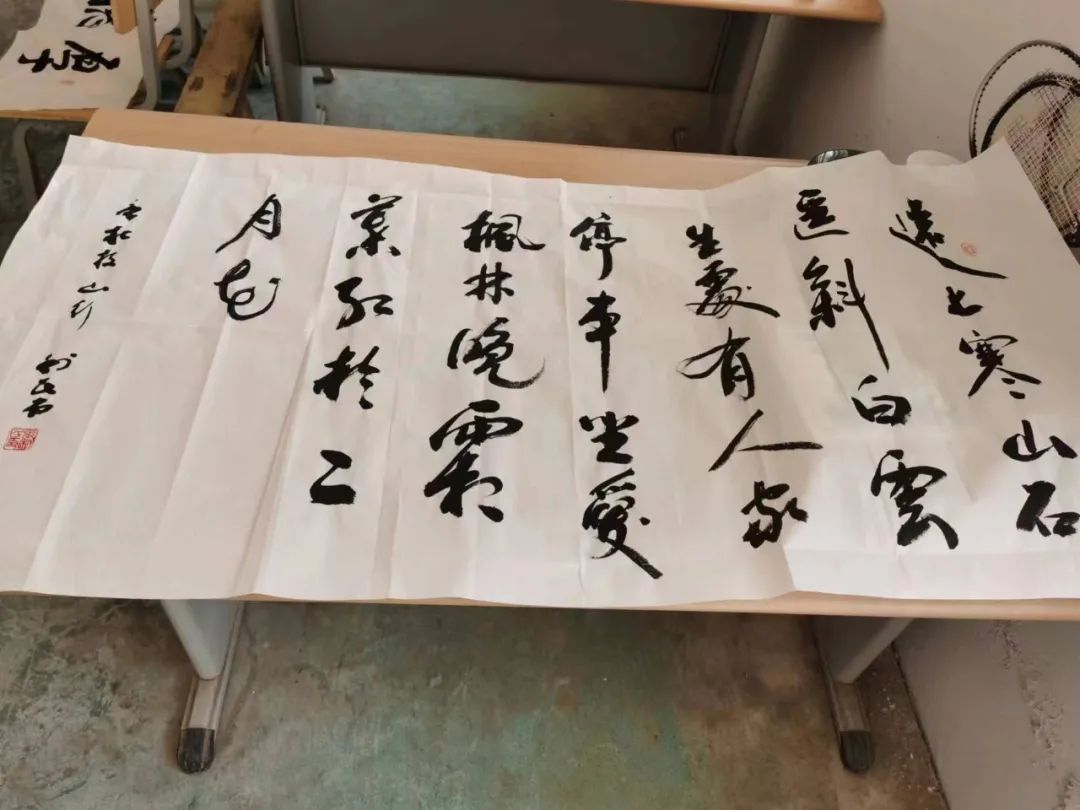 遠上寒山石
逕斜白雲
生處有人家
停車坐愛
楓林晚霜
葉紅於二
月花
唐杜牧山行